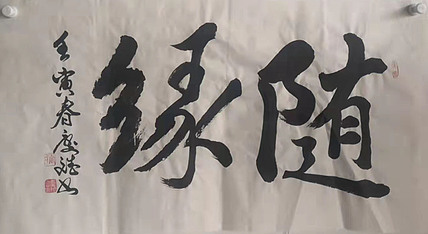 随缘
壬寅春